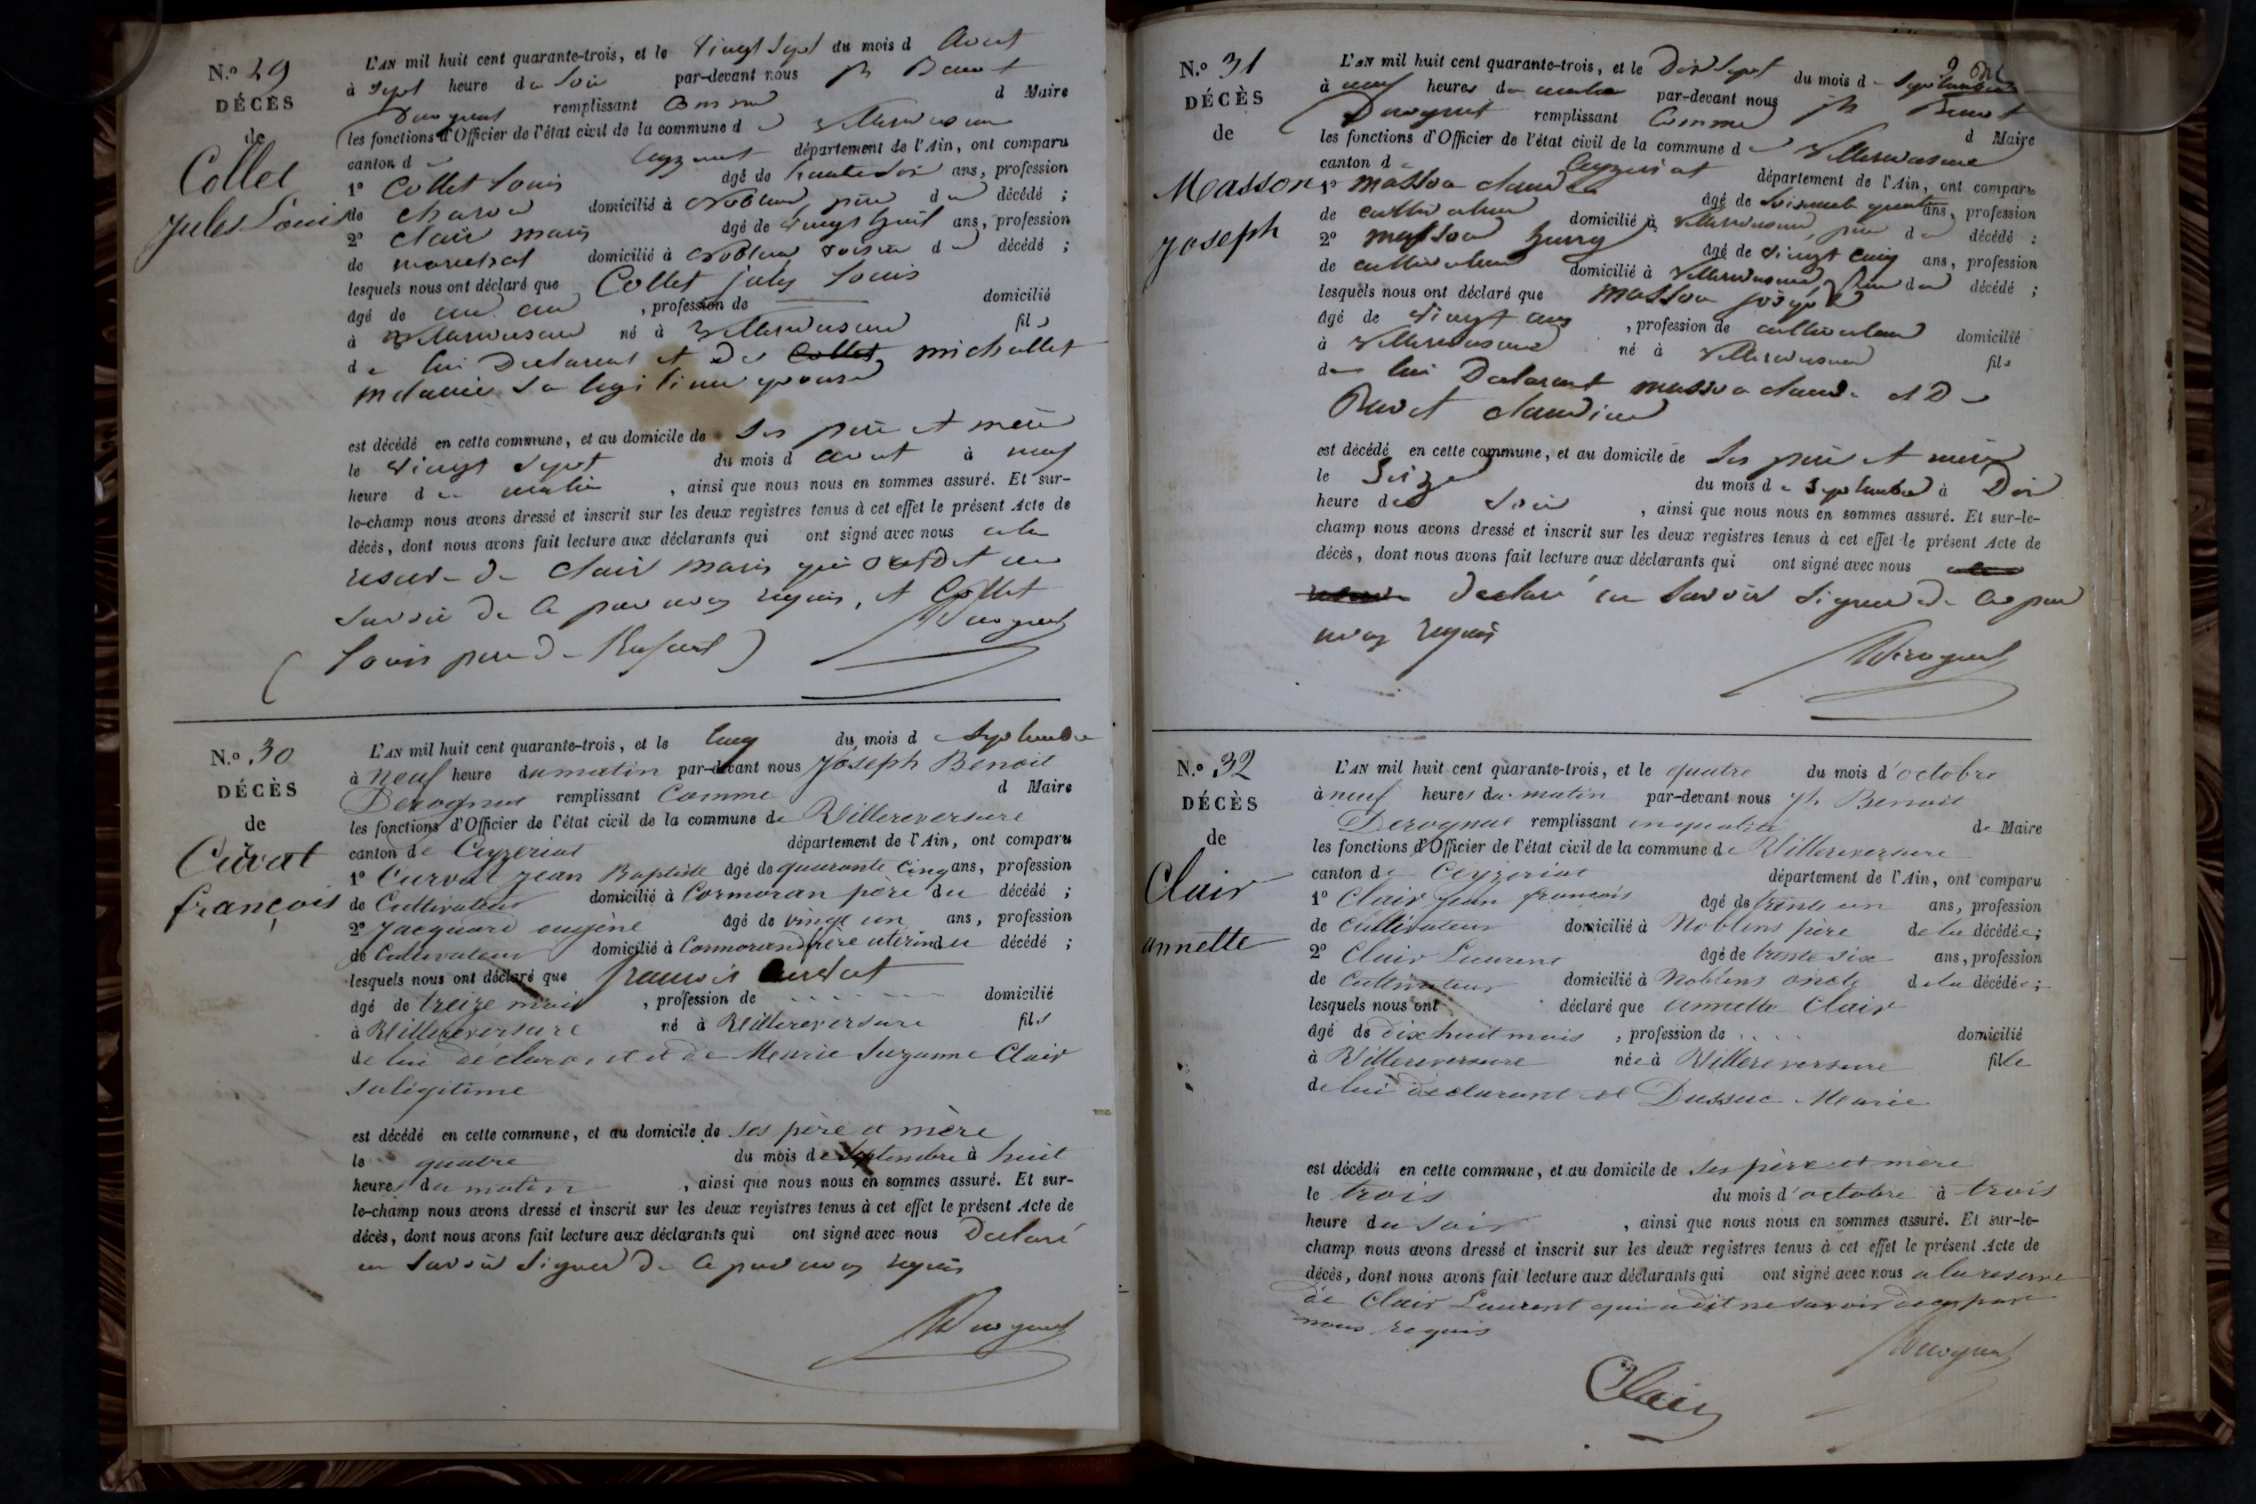 N.º 29
DÉCÈS
de
Collet
Jules Louis
L'AN mil huit cent quarante-trois, et le vingt sept du mois d Aout
à sept heure du soir par-devant nous Jh Benoit
Derognat remplissant comme d Maire
les fonctions d'Officier de l'état civil de la commune de Villereversure
canton d Ceyzeriat département de l'Ain, ont comparu
1º Collet Louis âgé de trente six ans, profession
de charon domicilié à Noblens, père du décédé ;
2º Clair marin âgé de vingt huit ans, profession
de marechal domicilié à Noblens voisin du décédé ;
lesquels nous ont déclaré que Collet jules Louis
âgé de un an , profession de domicilié
à Villereversure né à Villereversure fils
de lui Declarant et De Collet michallet
melanie sa legitime epouse
est décédé en cette commune, et au domicile de ses père et mère
le vingt sept du mois d aout à neuf
heure du matin , ainsi que nous nous en sommes assuré. Et sur-
le-champ nous avons dressé et inscrit sur les deux registres tenus à cet effet le présent Acte de
décès, dont nous avons fait lecture aux déclarants qui ont signé avec nous a la
reserve de Clair marin qui a dit ne
savoir de ce par nous requis, et Collet
Louis père de Refuse)
Derognat
N.º 30
DÉCÈS
de
Curvat
françois
L'AN mil huit cent quarante-trois, et le cinq du mois d septembre
à Neuf heure du matin par-devant nous Joseph Benoit
Derognat remplissant comme d Maire
les fonctions d'Officier de l'état civil de la commune de Villereversure
canton de Ceyzeriat département de l'Ain, ont comparu
1º Curvat Jean Baptiste âgé de quarante cinq ans, profession
de Cultivateur domicilié à Cormoran père du décédé ;
2º Jacquard eugène âgé de vingt un ans, profession
de Cultivateur domicilié à Cormoran frère uterin du décédé ;
lesquels nous ont déclaré que francois Curvat
âgé de treize mois , profession de domicilié
à Villereversure né à Villereversure fils
de lui déclarant et de Marie Suzanne Clair
sa légitime
est décédé en cette commune, et au domicile de ses père et mère
le quatre du mois de septembre à huit
heures du matin , ainsi que nous nous en sommes assuré. Et sur-
le-champ nous avons dressé et inscrit sur les deux registres tenus à cet effet le présent Acte de
décès, dont nous avons fait lecture aux déclarants qui ont signé avec nous Declaré
ne savoir signer de ce par nous requis
Derognat
N.º 31
DÉCÈS
de
Masson
Joseph
L'AN mil huit cent quarante-trois, et le Dix Sept du mois de septembre
à neuf heures du matin par-devant nous Jh Benoit
Derognat remplissant Comme d Maire
les fonctions d'Officier de l'état civil de la commune de Villereversure
canton de Ceyzeriat département de l'Ain, ont comparu
1º masson claude âgé de soixante quatre ans, profession
de cultivateur domicilié à Villereversure, père du décédé ;
2º masson âgé de vingt cinq ans, profession
de cultivateur domicilié à Villereversure frere du décédé ;
lesquels nous ont déclaré que masson joseph
âgé de vingt ans , profession de cultivateur domicilié
à Villereversure né à Villereversure fils
de lui Declarant masson claude et De
claudine
est décédé en cette commune, et au domicile de ses père et mère
le Seize du mois de septembre à Dix
heure du soir , ainsi que nous nous en sommes assuré. Et sur-le-
champ nous avons dressé et inscrit sur les deux registres tenus à cet effet le présent Acte de
décès, dont nous avons fait lecture aux déclarants qui ont signé avec nous a la
reserve declaré ne savoir signer de ce par
nous requis
Derognat
N.º 32
DÉCÈS
de
Clair
annette
L'AN mil huit cent quarante-trois, et le quatre du mois d'octobre
à neuf heures du matin par-devant nous Jh Benoit
Derognat remplissant en qualité de Maire
les fonctions d'Officier de l'état civil de la commune de Villereversure
canton de Ceyzeriat département de l'Ain, ont comparu
1º Clair Jean francois âgé de trente un ans, profession
de Cultivateur domicilié à Noblens père de la décédée ;
2º Clair Laurent âgé de trente six ans, profession
de Cultivateur domicilié à Noblens oncle de la décédée ;
lesquels nous ont déclaré que annette Clair
âgé de dix huit mois , profession de domicilié
à Villereversure née à Villereversure fille
de lui déclarant et Dussuc Marie
est décédé en cette commune, et au domicile de ses père et mère
le trois du mois d'octobre à trois
heure du soir , ainsi que nous nous en sommes assuré. Et sur-le-
champ nous avons dressé et inscrit sur les deux registres tenus à cet effet le présent Acte de
décès, dont nous avons fait lecture aux déclarants qui ont signé avec nous a la reserve
de Clair Laurent qui a dit ne savoir de ce par
nous requis
Derognat
Clair